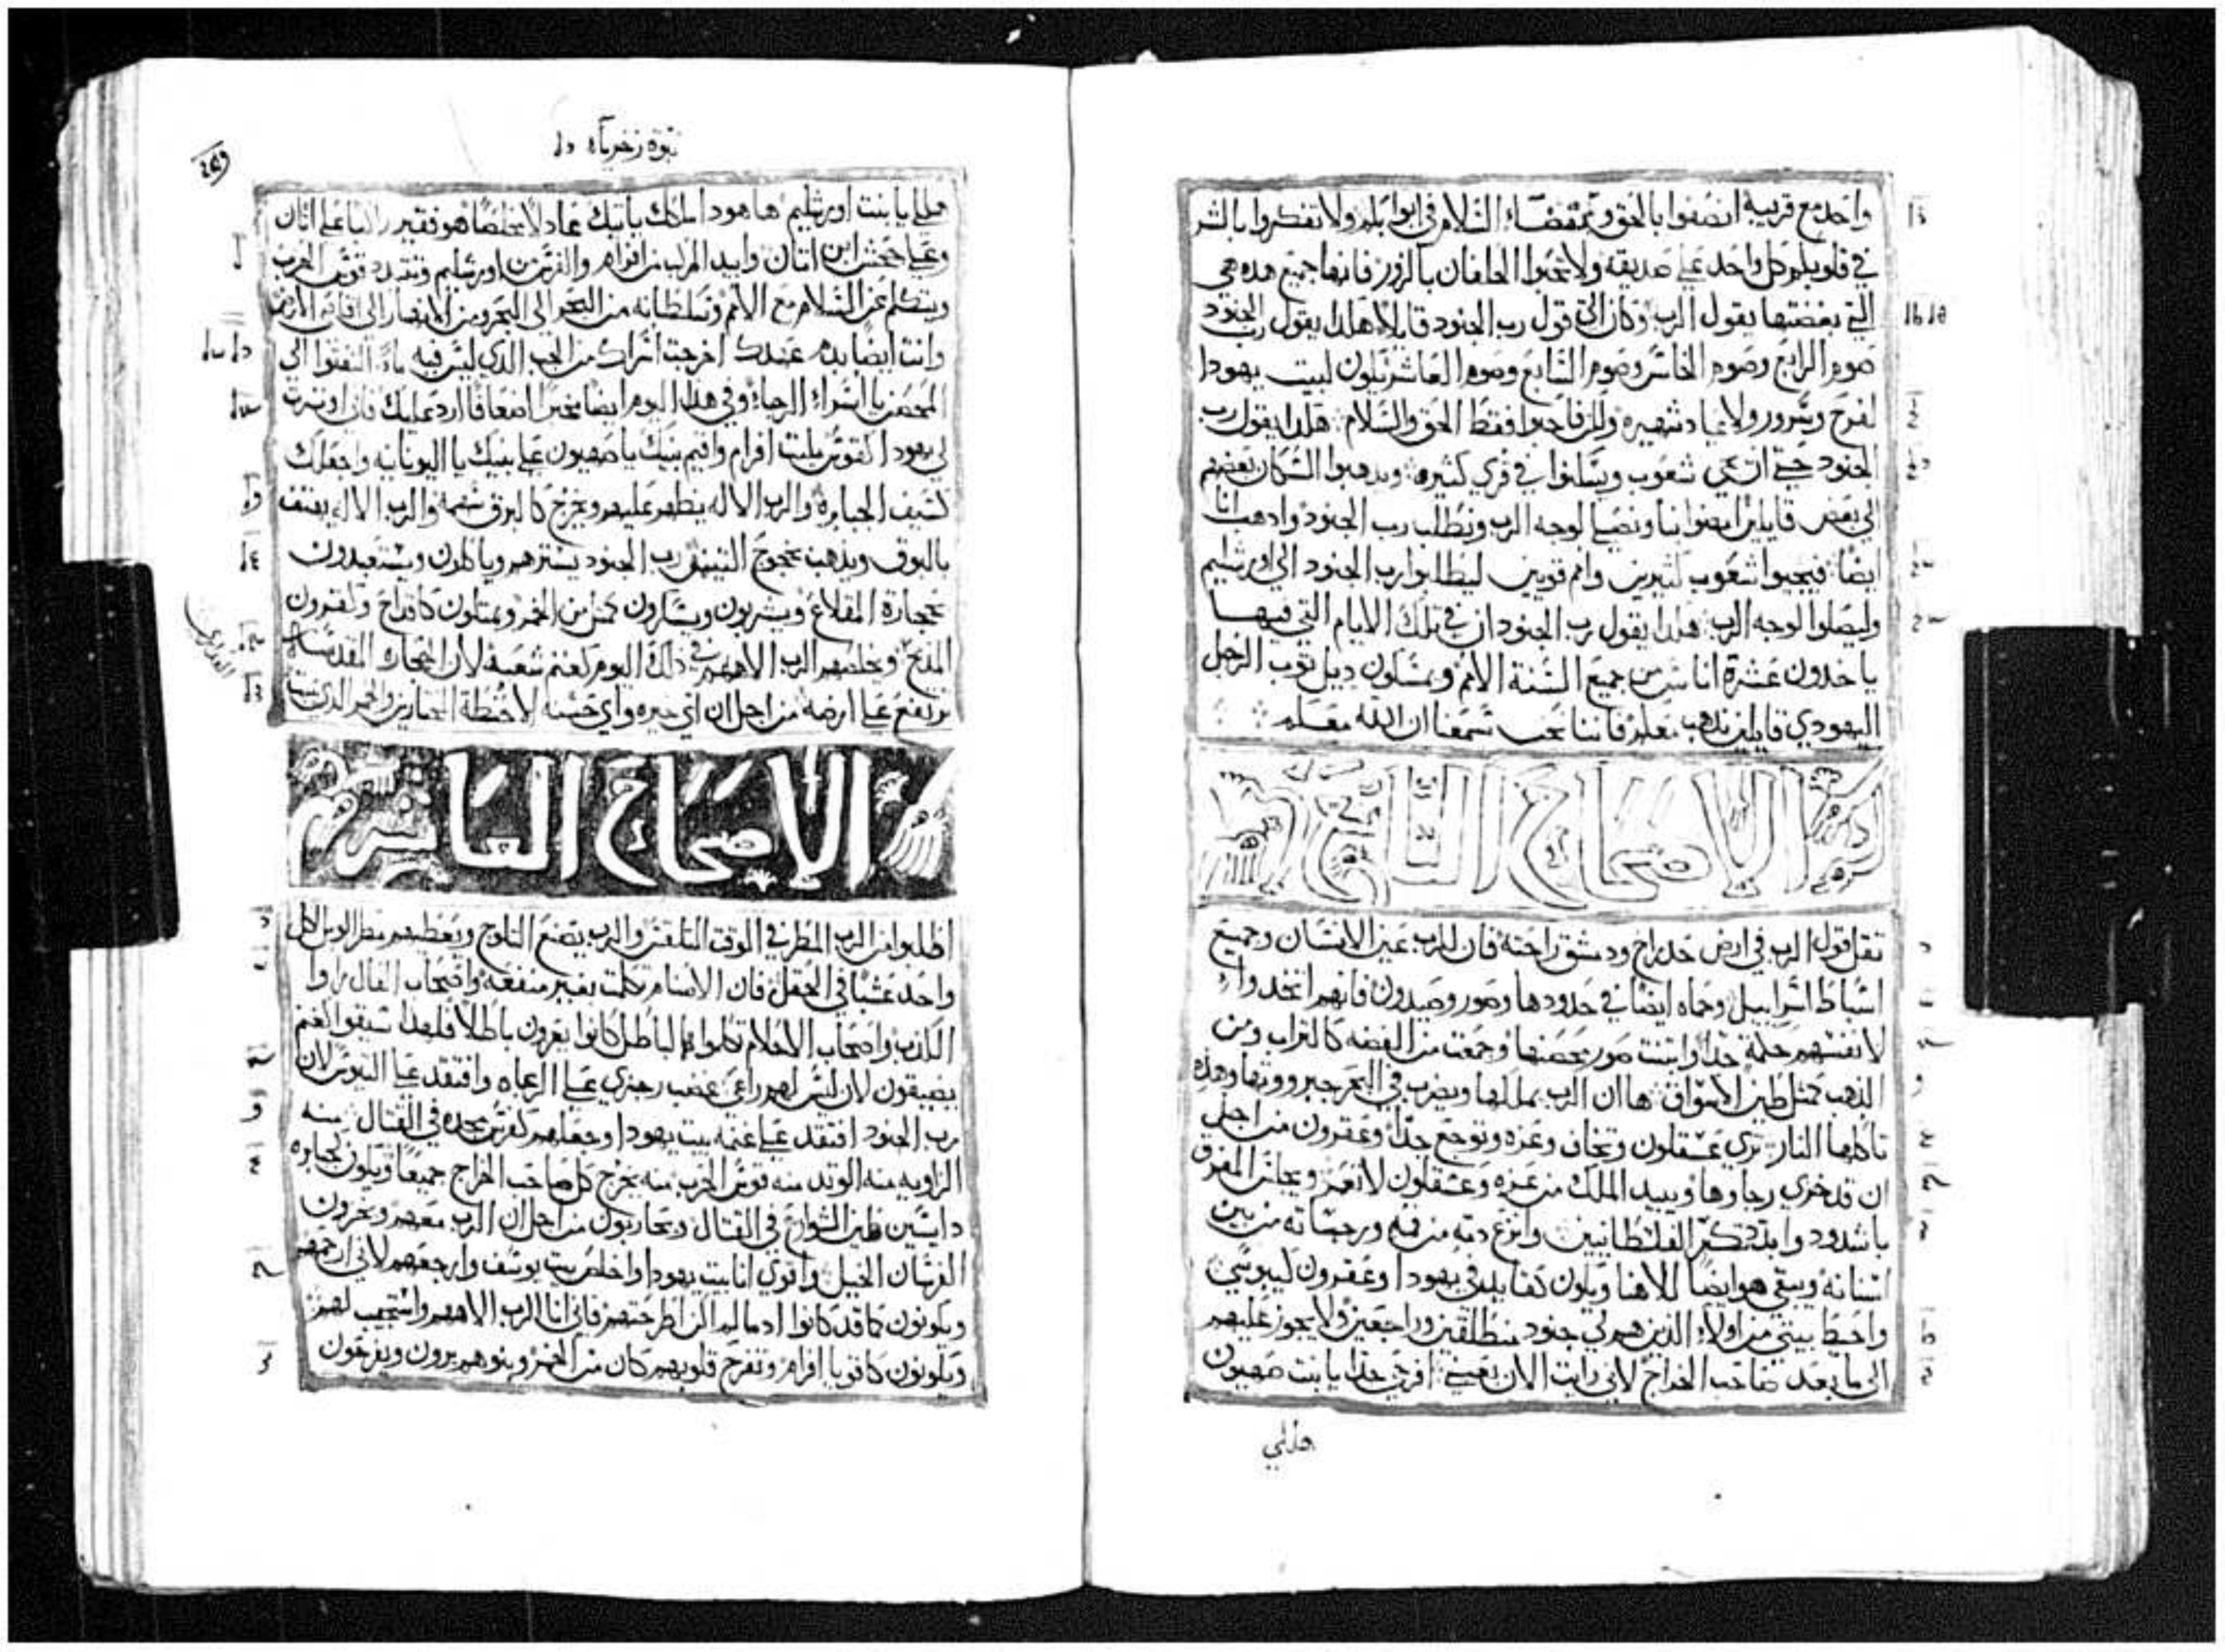 واحد مع قريبه انصفوا بالحق وبمقضاء السلام في ابوابكم ولا تفكروا بالشر
في قلوبكم كل واحد علي صديقه ولا تحبوا الحلفان بالزور فانها جميع هذه هي
التي بغضتها يقول الرب وكان الي قول رب الجنود قايلا هكذا يقول رب الجنود
صوم الرابع وصوم الخامس وصوم السابع وصوم العاشر تكون لبيت يهودا
لفرح وسرور ولاعياد شهيره ولكن فاحبوا فقط الحق والسلام هكذا يقول رب
الجنود حتي اتي شعوب ويسكنوا في قري كثيره ويذهبوا السكان بعضهم
الي بعض قايلين امضوا بنا ونصلي لوجه الرب ونطلب رب الجنود واذهب انا
ايضا فيجيوا شعوب كتيرين وامم قويين ليطلبوا رب الجنود الي اورشليم
وليصلوا لوجه الرب هكذا يقول رب الجنود ان في تلك الايام التي فيها
ياخدون عشرة اناس من جميع السنة الامم ويمسكون ديل توب الرجل
اليهودي قايلين نذهب معكم فاننا نحن سمعنا ان الله معكم
الاصحاح التاسع
تقل قول الرب في ارض حدراخ ودمشق راحته فان للرب عين الانسان وجميع
اسباط اسراييل وحماه ايضا في حدودها وصور وصيدون فانهم اتخدوا
لانفسهم حكمة جدا وابتنت صور حصنها وجمعت من الفضه كالتراب ومن
الذهب كمثل طين الاسواق ها ان الرب يملكها ويضرب في البحر جبرووتها وهذه
تاكلها النار تري عسقلون وتخاف وغزه وتوجع جدا وعقرون من اجل
ان قد خزي رجاوها ويبيد الملك من غزه وعسقلون لا تعمر ويجلس المفرق
باشدود وابدد تكبر الفلسطانيين وانزع دمه من فمه ورجساته من بين
اسنانه ويبقي هو ايضا لالاهنا ويكون كقايد في يهودا وعقرون كيبوسي
واحيط بيتي من اولاء الذين هم لي جنود منطلقين وراجعين ولا يجوز عليهم
الي ما بعد صاحب الخراج لاني رايت الان بعيني افرحي جدا يا بنت صهيون
هللي
نبوة زخرياه
هللي يا بنت اورشليم ها هودا ملكك ياتيك عادلا مخلصا هو فقير راكبا علي اتان
وعلي جحش ابن اتان وابيد المركب من افرام والفرس من اورشليم وتتبدد قوس الحرب
ويتكلم عن السلام مع الامم وسلطانه من البحر الي البحر ومن الانهار الي اقاصي الارض
وانت ايضا بدم عهدك اخرجت اسراك من الجب الذي ليس فيه ماء التفتوا الي
الحصن يا اسراء الرجاء وفي هذا اليوم ايضا مخبرا اضعافا ارد عليك فاني اوترت
لي يهودا كقوس مليت افرام واقيم بنيك يا صهيون علي بنيك يا اليونانيه واجعلك
كسيف الجبابرة والرب الاله يظهر عليهم ويخرج كالبرق سهمه والرب الاله يهتف
بالبوق ويذهب بعجوج التيمن رب الجنود يسترهم وياكلون ويستعبدون
بحجارة المقلاع ويشربون ويسكرون كمثل من الخمر ويمتلون كاقداح وكقرون
المذبح ويخلصهم الرب الاههم في ذلك اليوم كغنم شعبه لان الحجاره المقدسه
ترتفع علي ارضه من اجل ان اي خيره واي حسنه الا حنطة المختارين والخمر الذي ينبت
العذاري
الاصحاح العاشر
اطلبوا من الرب المطر في الوقت المتلقس والرب يصنع التلوج ويعطيهم مطر الوبل لكل
واحد عشبا في الحقل فان الاصنام تكلمت بغير منفعه واصحاب الفال راوا
الكذب واصحاب الاحلام تكلموا بالباطل كانوا يعزون باطلا فلهذا سيقوا كغنم
يضيقون لان ليس لهم راعي غضب رجزي علي الرعاه وافتقد علي التيوس لان
رب الجنود افتقد علي غنمه بيت يهودا وجعلهم كفرس مجده في القتال منه
الزاويه منه الوتد منه قوس الحرب منه يخرج كل صاحب الخراج جميعا ويكون كجبابره
دايسين طين الشوارع في القتال ويحاربون من اجل ان الرب معهم ويخزون
الفرسان الخيل واقوي انا بيت يهودا واخلص بيت يوسف وارجعهم لاني ارحمهم
ويكونون كما قد كانوا اد ما لم اكن اطرحتهم فاني انا الرب الاههم واستجيب لهم
ويكونون كاقويا افرام وتفرح قلوبهم كان من الخمر وبنوهم يرون ويفرحون